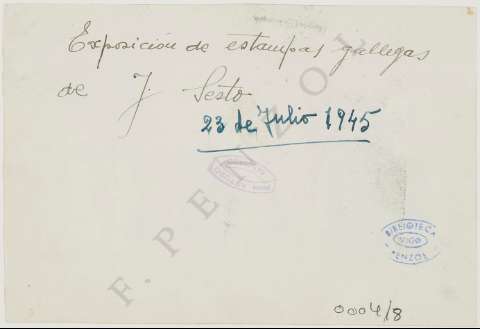 Exposición de estampas gallegas
de J. Sesto
23 de Julio 1945
F. PENZOL
BIBLIOTECA
VIGO
PENZOL
0004/8